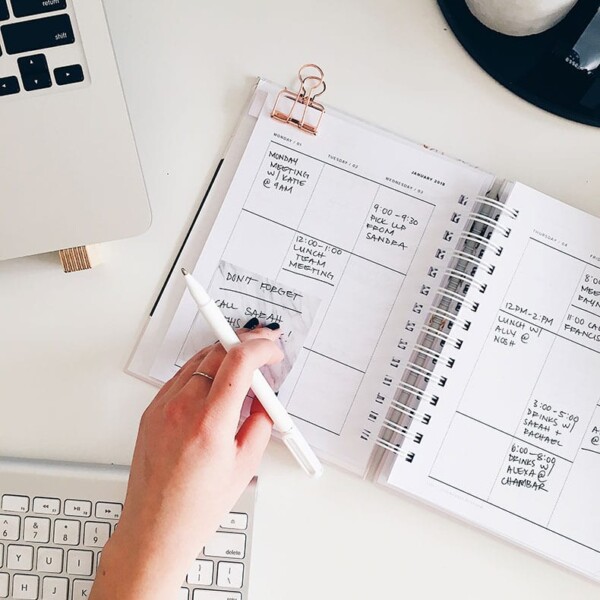 return
shift
MONDAY / 01
TUESDAY / 02
JANUARY 2018
WEDNESDAY / 03
MONDAY
MEETING
W/ KATIE
@ 9AM
9:00-9:30
PICK UP
FROM
SANDRA
12:00-1:00
LUNCH
TEAM
MEETING
DON'T FORGET
CALL SARAH
THIS
THURSDAY / 04
8:0
MEE
RAYN
11:00 CA
FRANCIS
12PM-2PM
LUNCH W/
ALLY @
NOSH
3:00-5:00
DRINKS W/
SARAH +
RACHAEL
6:00-8:00
DRINKS W/
ALEXA @
CHAMBAR
A
@
delete
6 7 8 9 0
Y U I O
H J K